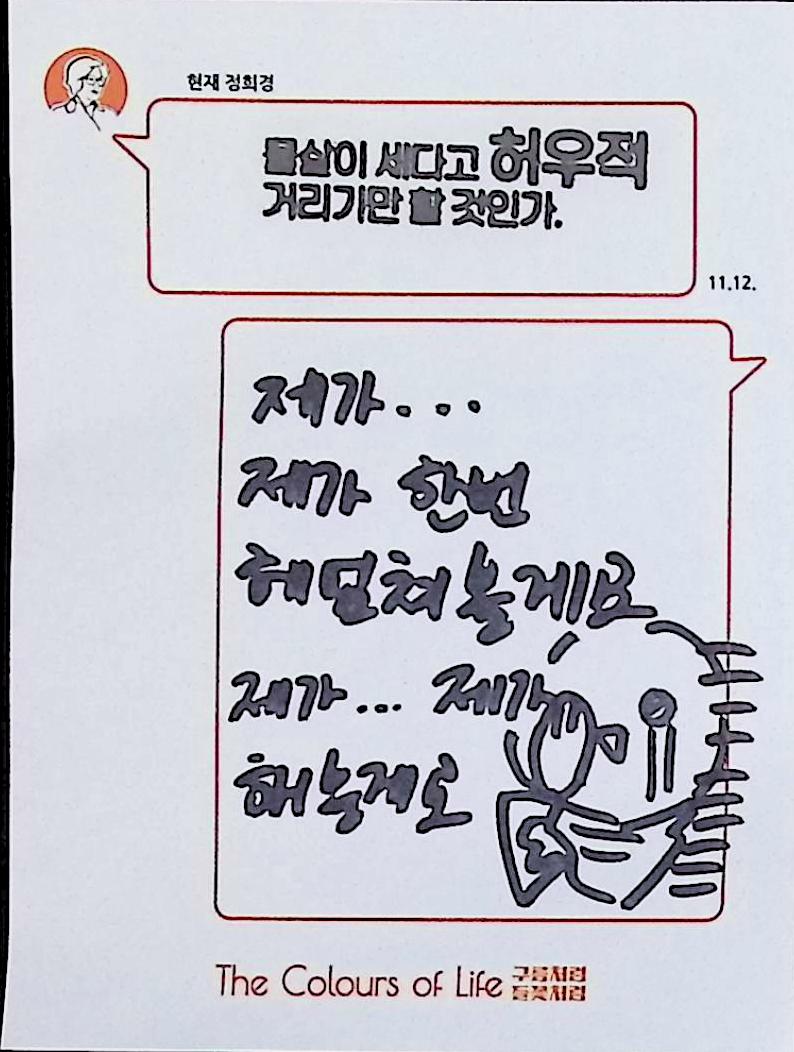 현재 정희경
물살이 세다고 허우적
거리기만 할 것인가.
11.12.
제가...
제가 한번
헤엄쳐볼게요
제가... 제가
해볼게요
The Colours of Life 구름처럼
들꽃처럼